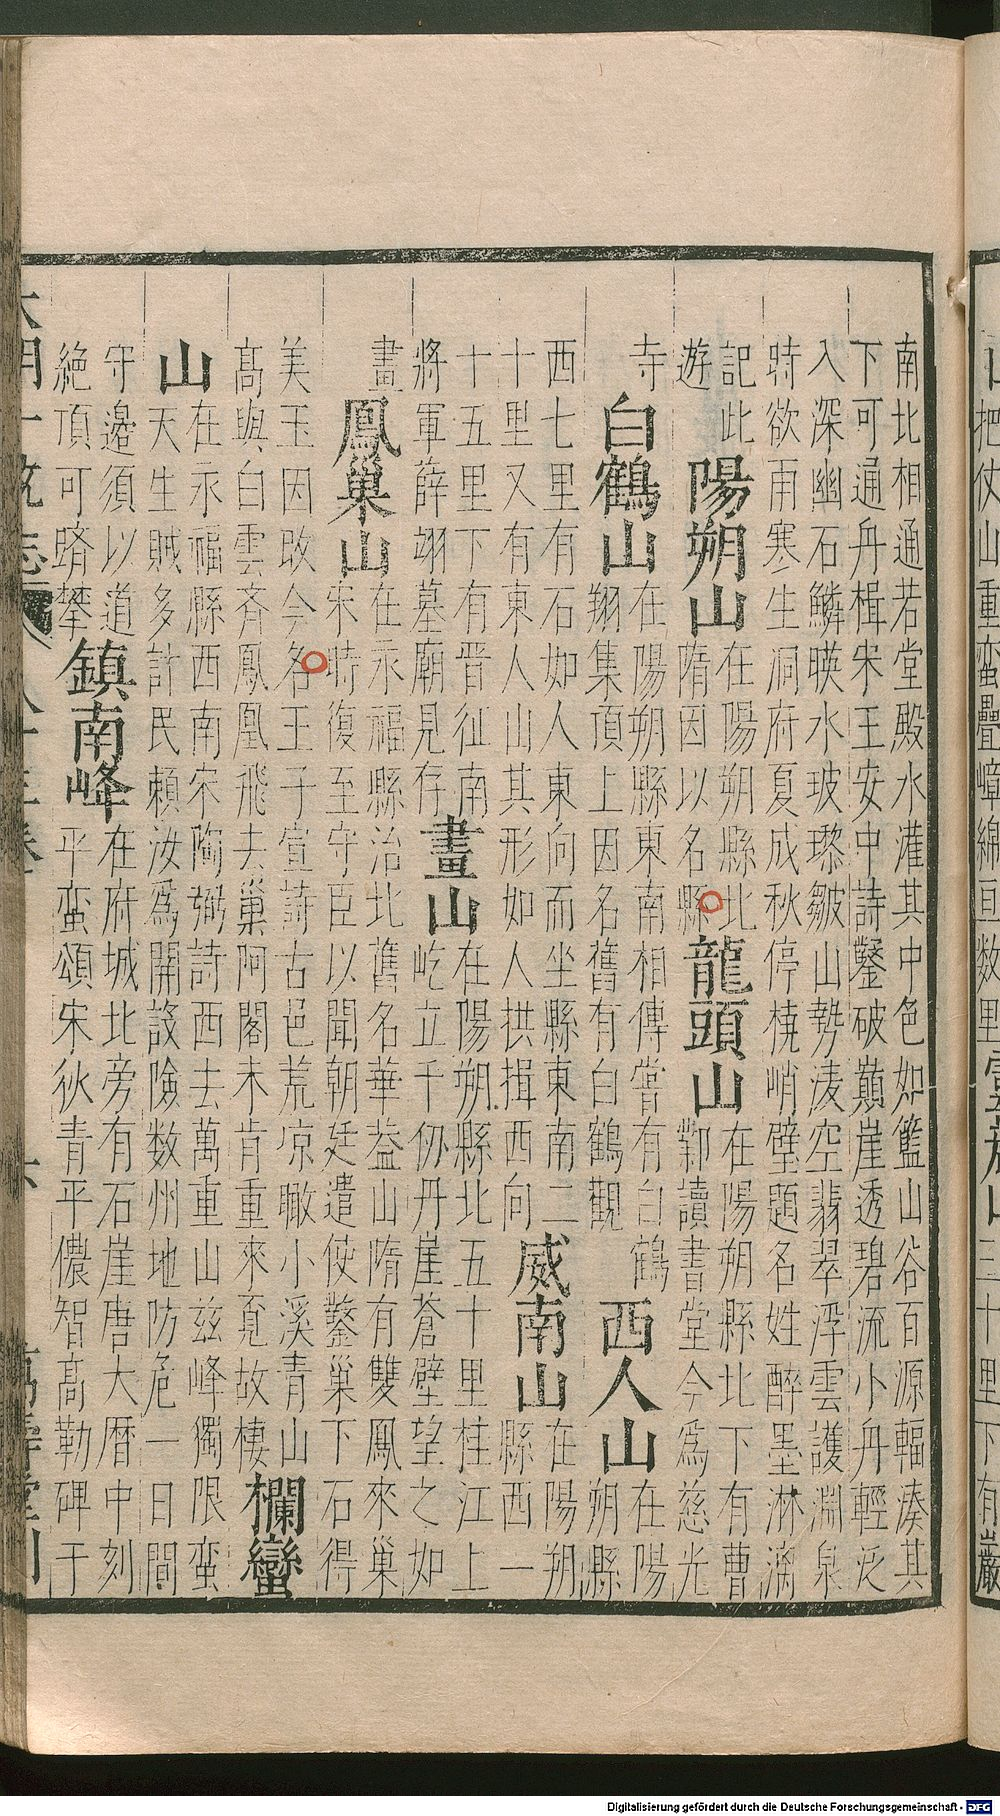 南北相通若堂殿水灌其中色如籃山谷百源輻湊其
下可通丹楫宋王安中詩鑿破巔崖透碧流小丹輕泛
入深幽石鱗暎水玻瓈皺山勢淩空翡翠浮雲護淵泉
時欲雨寒生洞府夏成秋停橈峭壁題名姓醉墨淋漓
記此
遊
陽朔山
在陽朔縣北
隋因以名縣
龍頭山
在陽朔縣北下有曹
鄴讀書堂今為慈光
寺
白鶴山
在陽朔縣東南相傳嘗有白鶴
翔集頂上因名舊有白鶴觀
西人山
在陽
朔縣
西七里有石如人東向而坐縣東南二
十里又有東人山其形如人拱揖西向
威南山
在陽朔
縣西一
十五里下有晉征南
將軍薛翊墓廟見存
畫山
在陽朔縣北五十里桂江上
屹立千仞丹崖蒼壁望之如
畫
鳳巢山
在永福縣治北舊名華蓋山隋有雙鳳來巢
宋時復至守臣以聞朝廷遣使鑿巢下石得
美玉因改今名王子宣詩古邑荒凉瞰小溪青山
髙與白雲斉鳳凰飛去巢阿閣未肯重來覓故棲
欄蠻
山
在永福縣西南宋陶弼詩西去萬重山兹峰獨限蛮
天生賊多計民賴汝為開設險数州地防危一日間
守邊須以道
絶頂可躋攀
鎮南峰
在府城北旁有石崖唐大曆中刻
平蛮頌宋狄青平儂智髙勒碑于
大明一統志
Digitalisierung gefördert durch die Deutsche Forschungsgemeinschaft - DFG